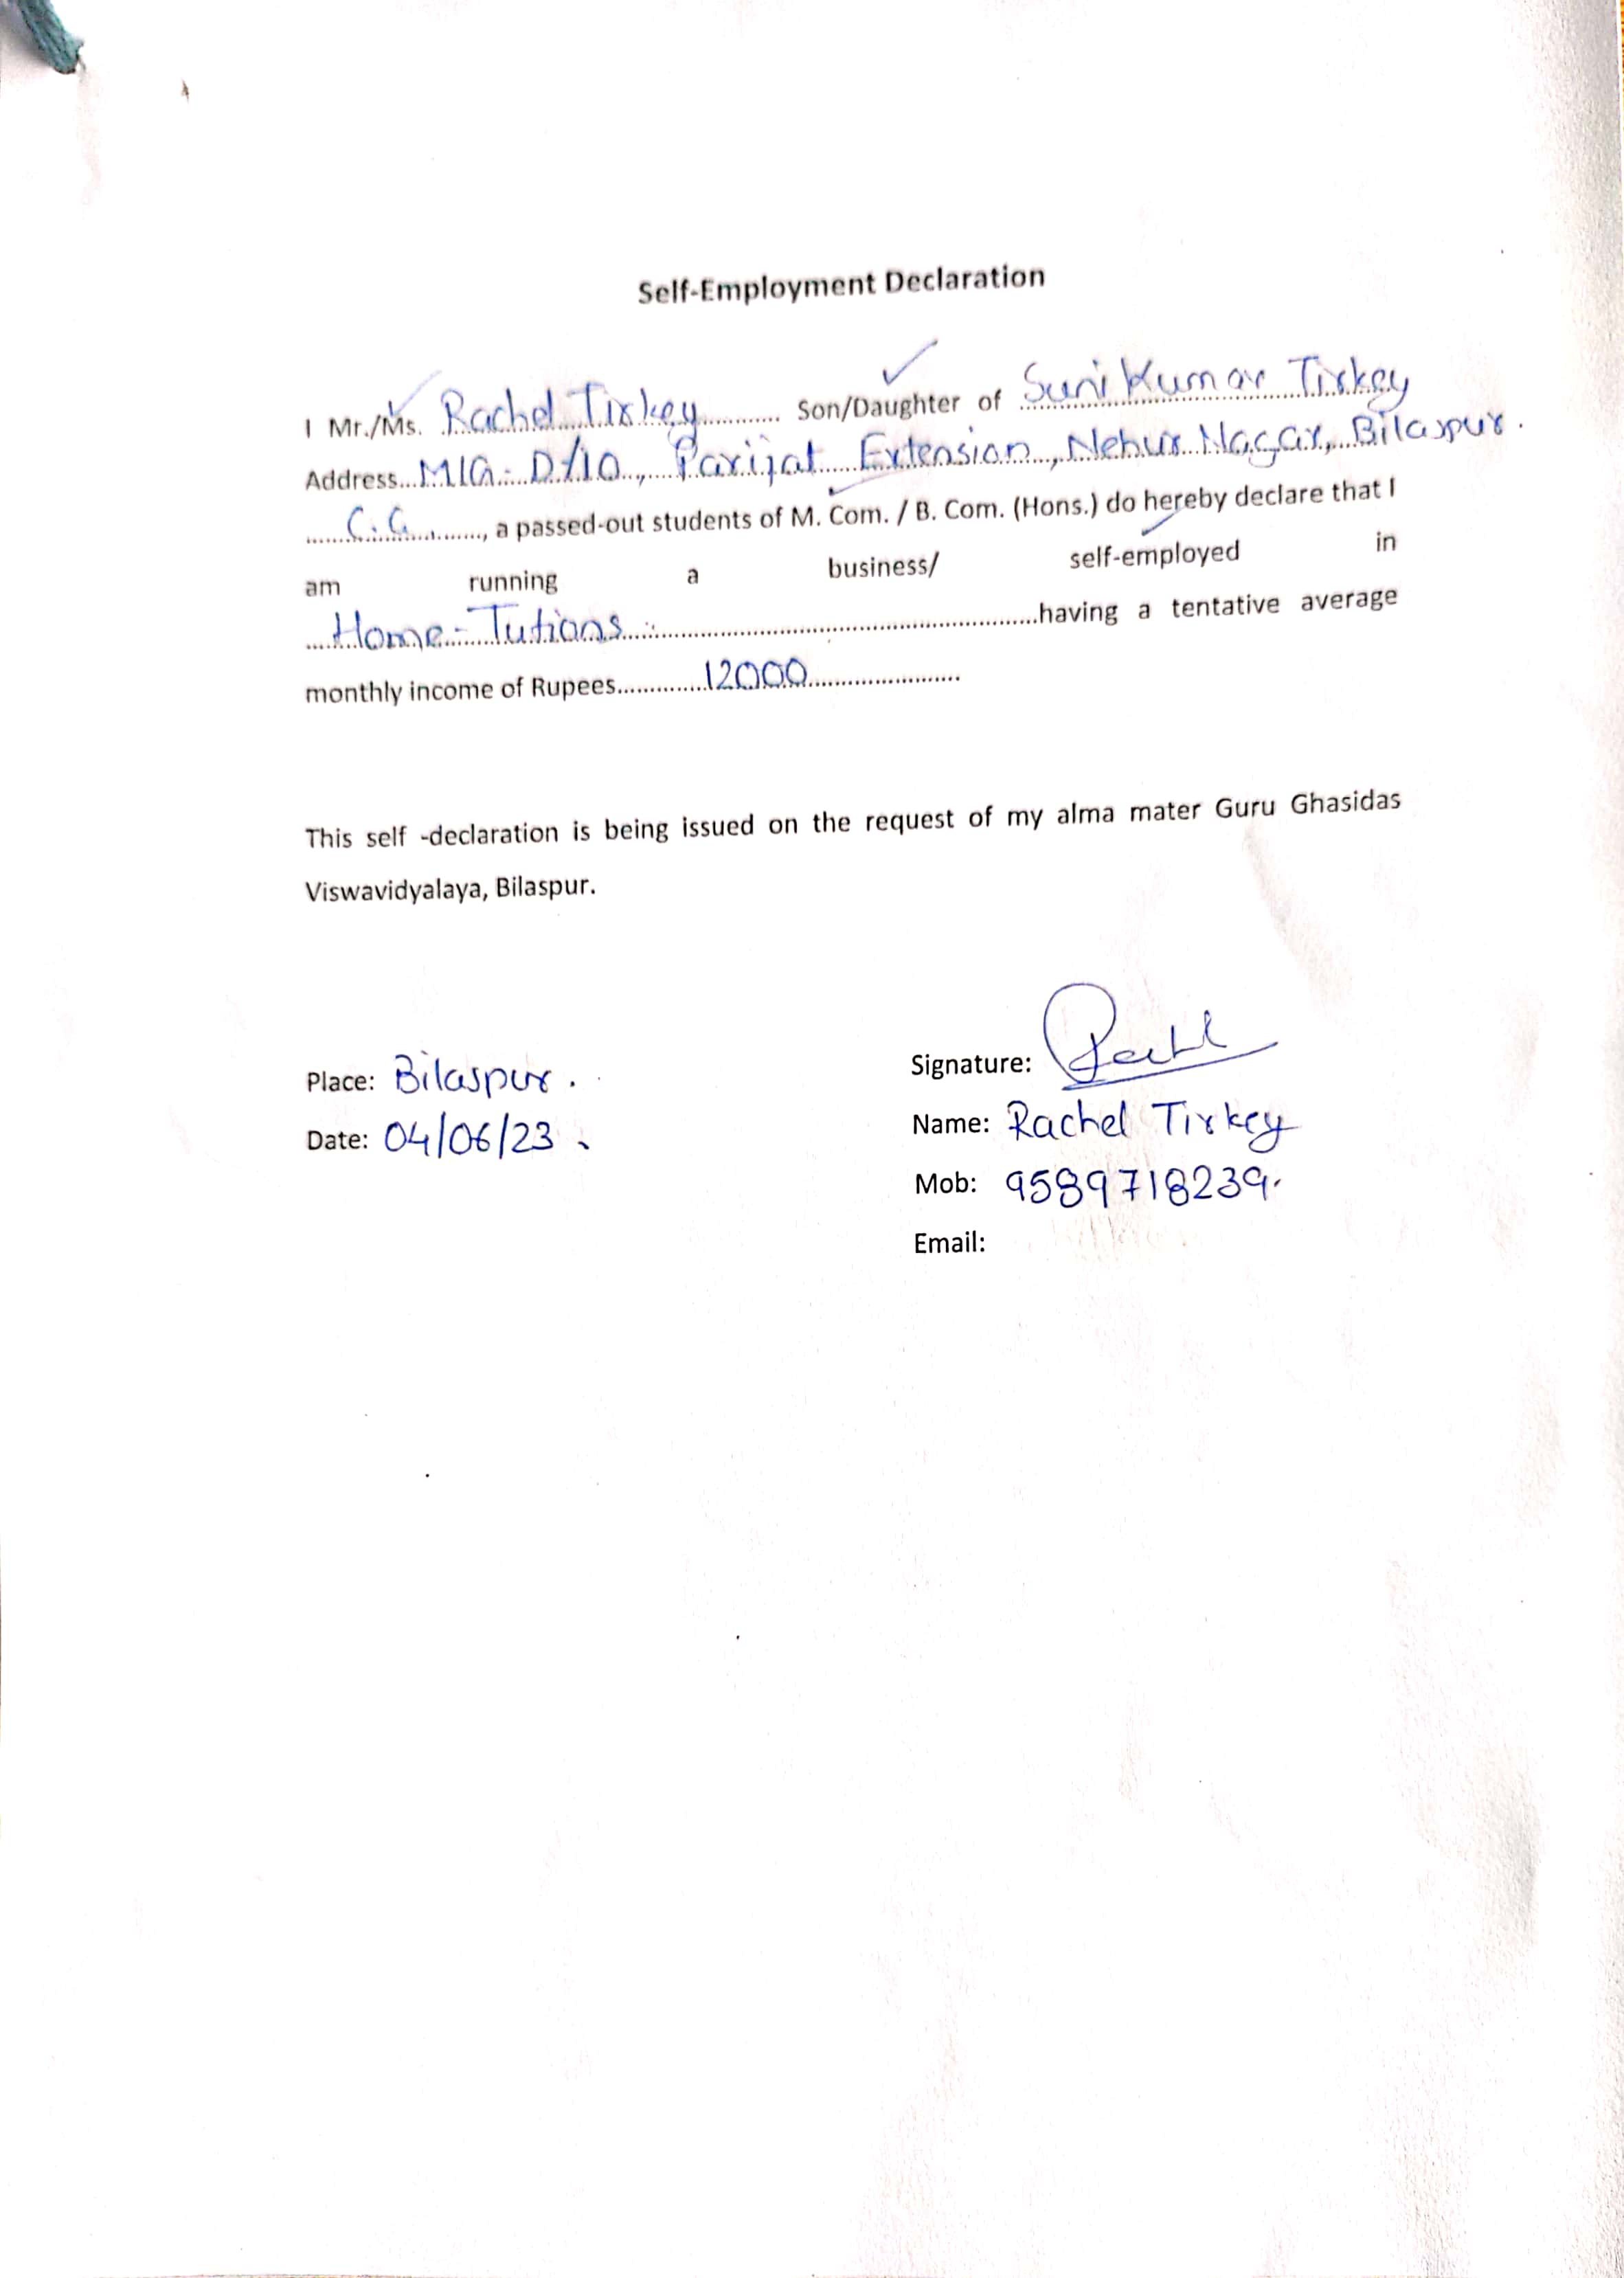 Self-Employment Declaration
I Mr./Ms. Rachel Tirkey............ Son/Daughter of Suni Kumar Tirkey
Address...MIG-D/10, Parijat Extension, Nehur Nagar, Bilaspur.
C.G........, a passed-out students of M. Com. / B. Com. (Hons.) do hereby declare that I
am running a business/ self-employed in
Home-Tutions..........................................................having a tentative average
monthly income of Rupees..............12000........................
This self -declaration is being issued on the request of my alma mater Guru Ghasidas
Viswavidyalaya, Bilaspur.
Place: Bilaspur.
Date: 04/06/23
Signature:
Name: Rachel Tirkey
Mob: 9589718239.
Email: